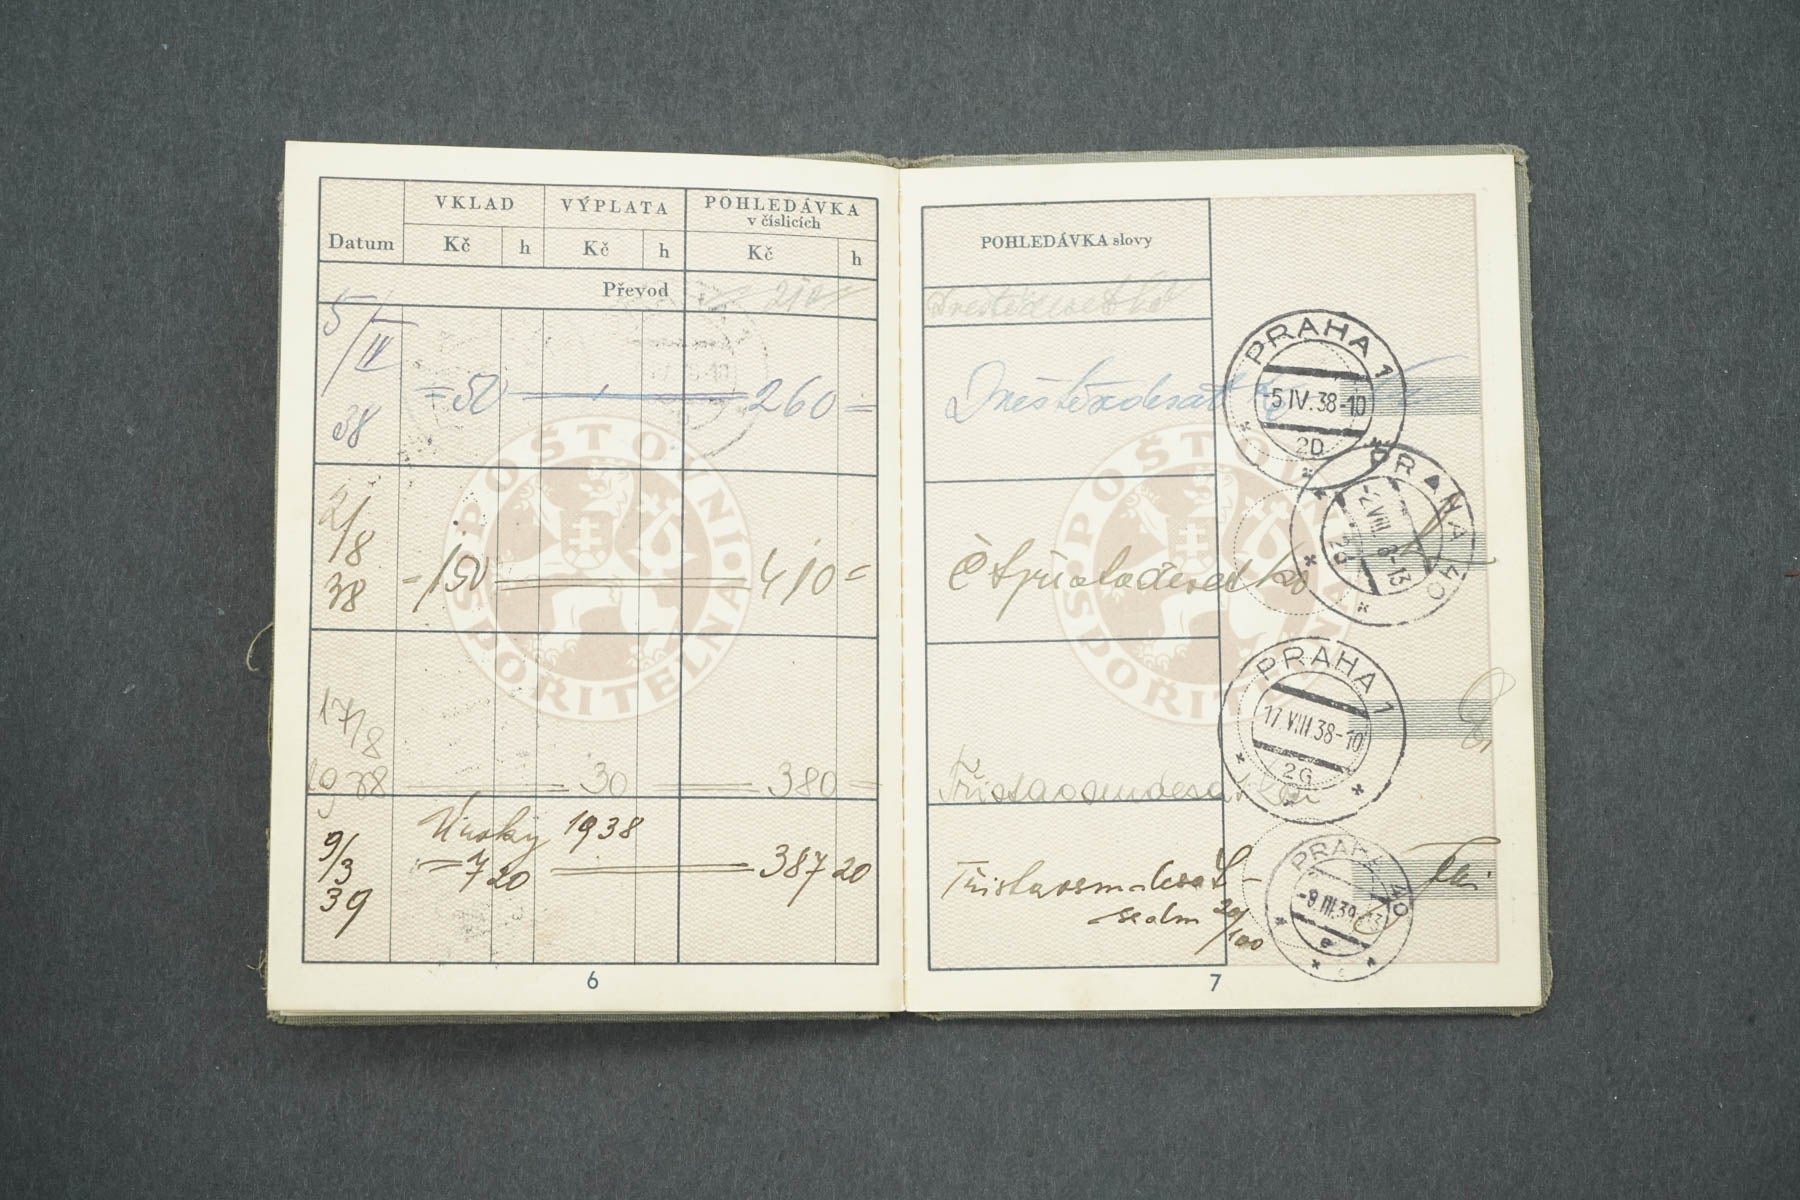 VKLAD VÝPLATA POHLEDÁVKA
v číslicích
Datum Kč h Kč h Kč h
Převod 210
5/IV
38 =50 260=
POŠTOVNÍ SPOŘITELNA
2/8
38 =150 410=
17/8
1938 30 380=
Úroky 1938
9/3
39 =7 20 387 20
6
POHLEDÁVKA slovy
PRAHA 1
-5 IV.38-10
2D
POŠTOVNÍ SPOŘITELNA
PRAHA 40
-2 VIII 8-13
2d
Čtyřistadeset kč
PRAHA 1
17 VIII 38-10
2G
Třistaosmdesát
Třistaosmdesát-
sedm 20/100
PRAHA 40
-9.III.39
e
7